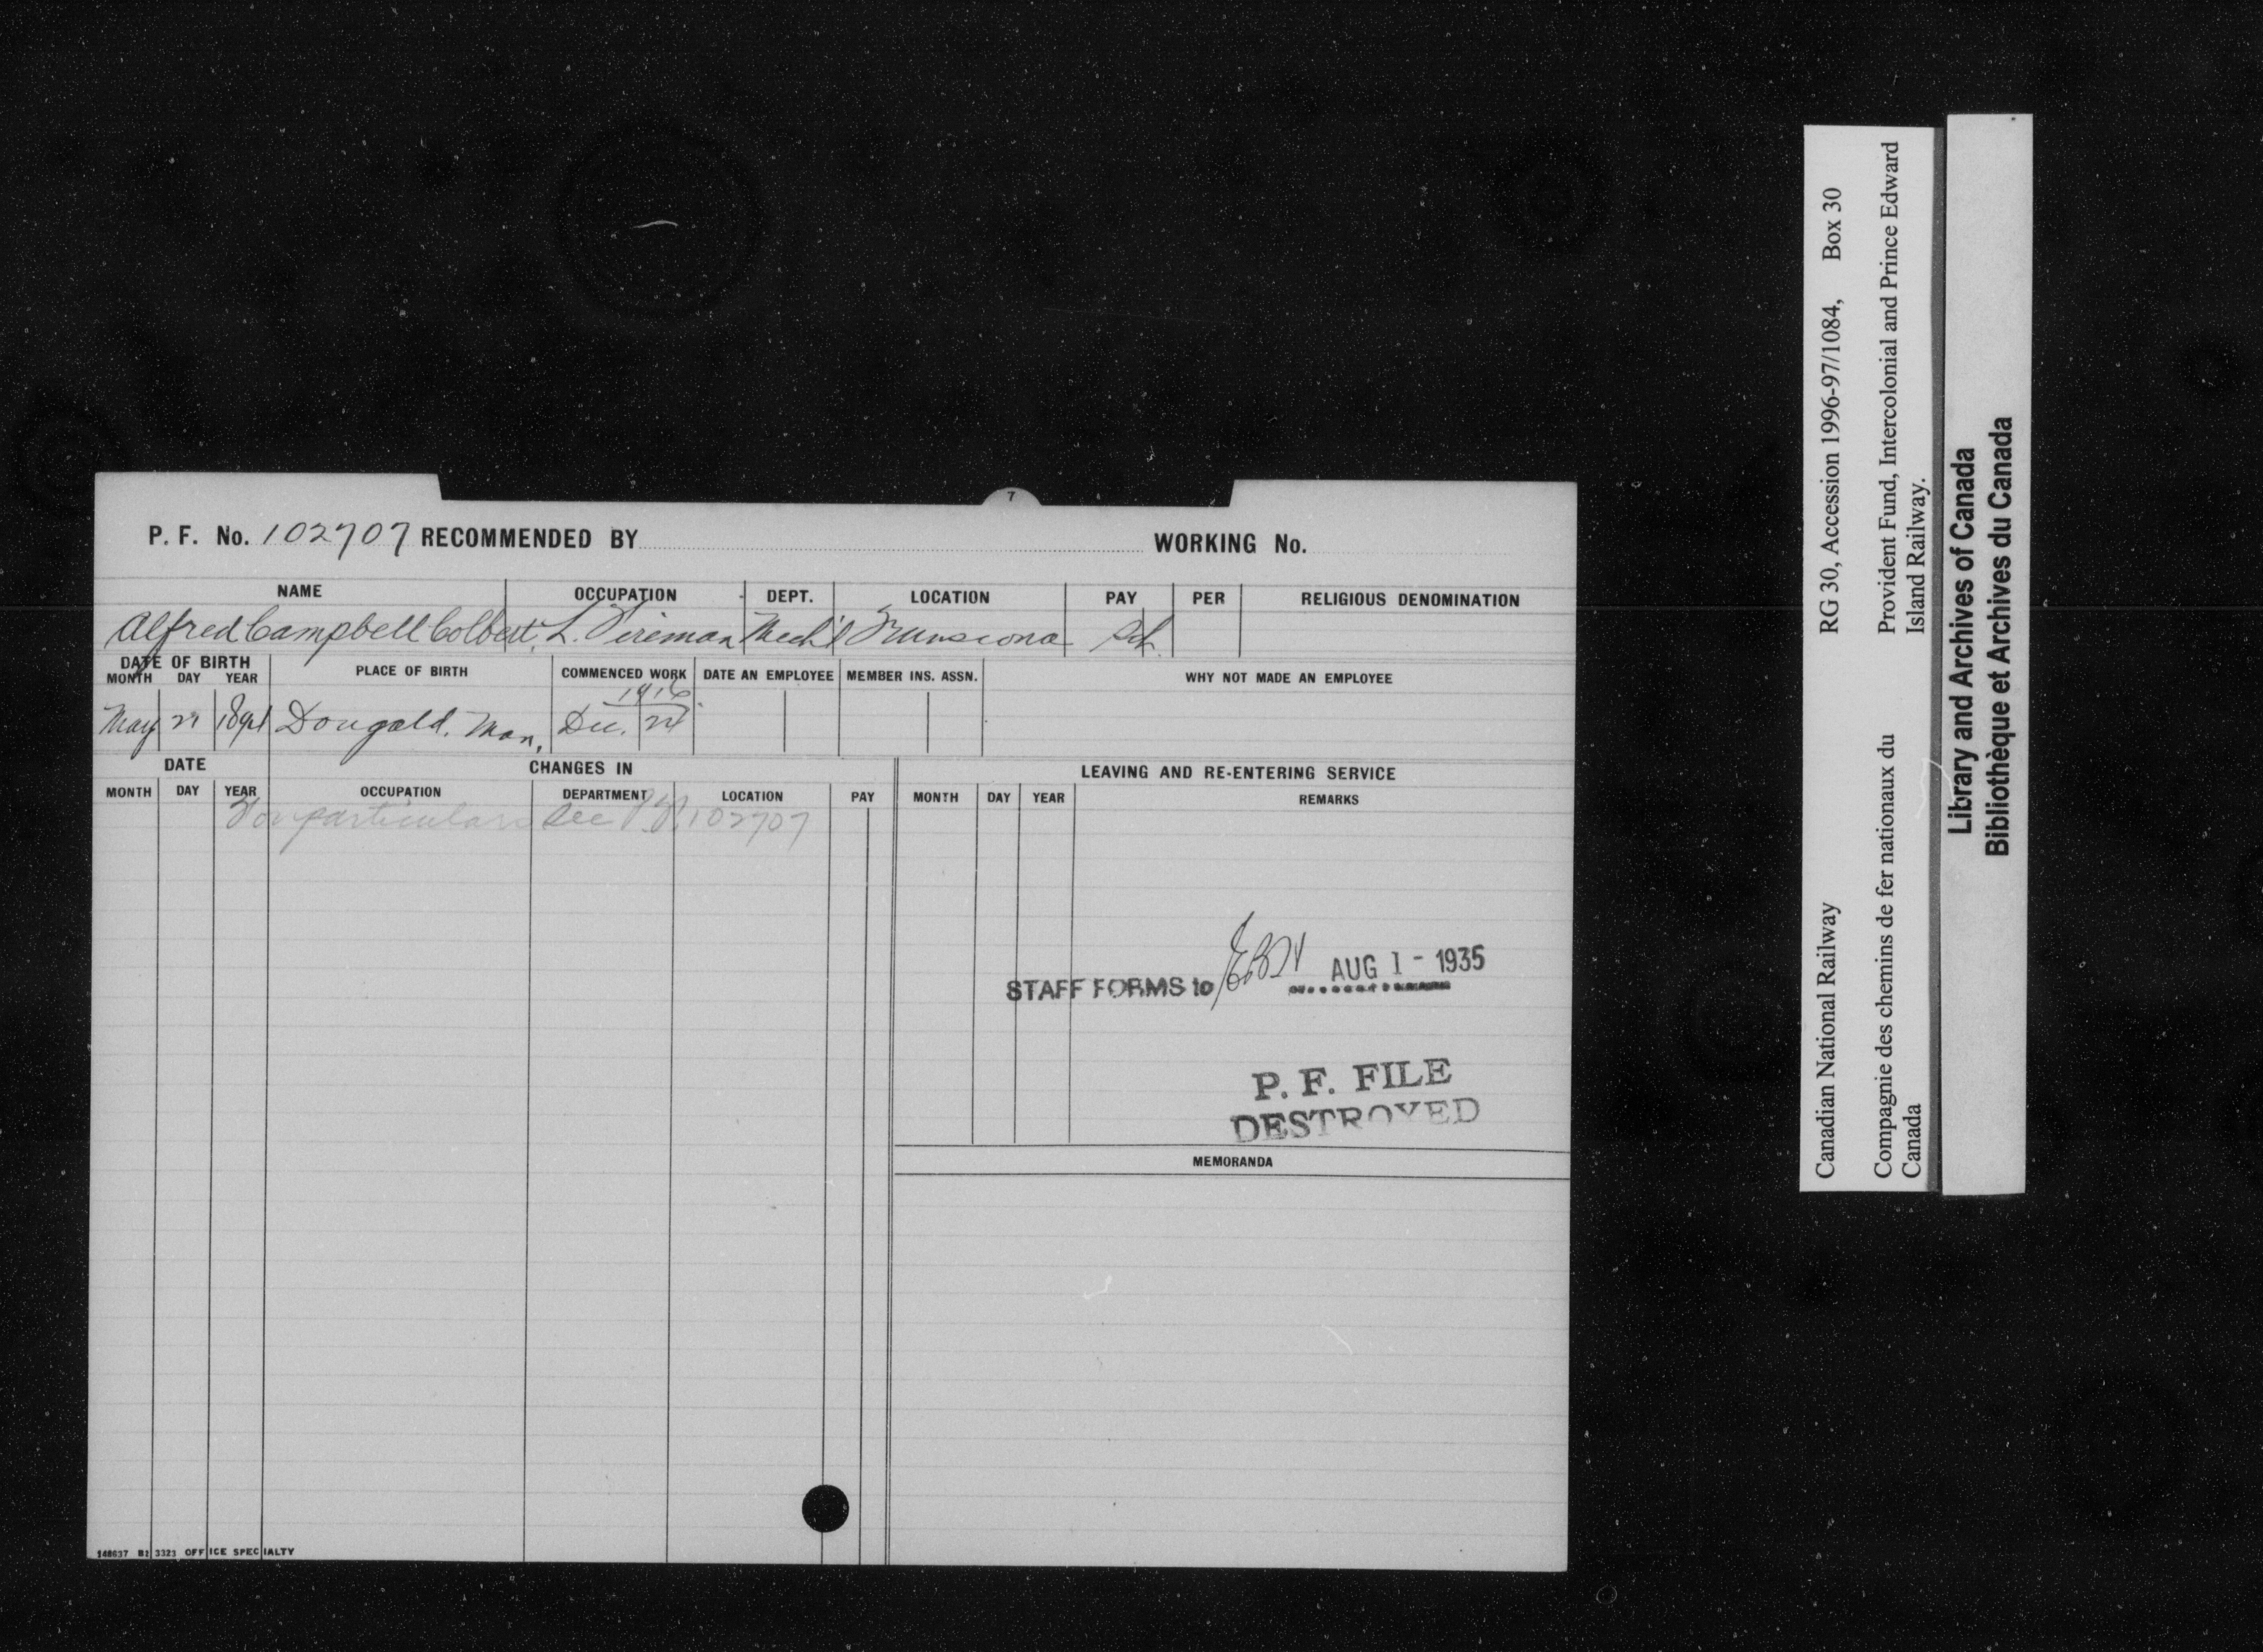 7
P. F. No. 102707 RECOMMENDED BY WORKING No.
NAME OCCUPATION DEPT. LOCATION PAY PER RELIGIOUS DENOMINATION
Alfred Campbell Colbert. L. Fireman Mech'l Transcona Sch.
DATE OF BIRTH PLACE OF BIRTH COMMENCED WORK DATE AN EMPLOYEE MEMBER INS. ASSN. WHY NOT MADE AN EMPLOYEE
MONTH DAY YEAR
1916
May 21 Dougald. Man. Dec.
DATE CHANGES IN LEAVING AND RE-ENTERING SERVICE
MONTH DAY YEAR OCCUPATION DEPARTMENT LOCATION PAY MONTH DAY YEAR REMARKS
For particulars see P.F. 102707
STAFF FORMS to AUG 1 - 1935
P. F. FILE
DESTROYED
MEMORANDA
148637 B1 3323 OFFICE SPECIALTY
Canadian National Railway RG 30, Accession 1996-97/1084, Box 30
Compagnie des chemins de fer nationaux du Provident Fund, Intercolonial and Prince Edward
Canada Island Railway.
Library and Archives of Canada
Bibliothèque et Archives du Canada